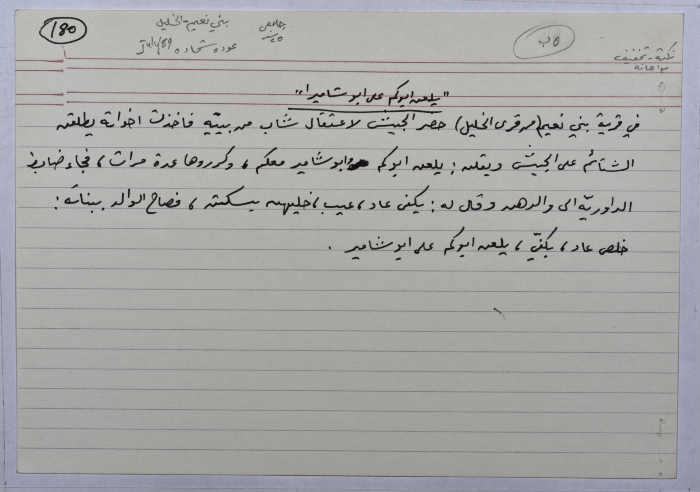 180
بني نعيم - الخليل
عوده شحاده July/89
نكتة - تخفيف
"يلعن ابوكم على ابو شامير!"
في قرية بني نعيم (من قرى الخليل) حضر الجيش لاعتقال شاب من بيته فاخذت اخواته يطلقن
الشتائم على الجيش ويقلن: يلعن ابوكم ابو شامير معكم، وكرروها عدة مرات، فجاء ضابط
الداوريّة الى والدهن وقال له: يكفي عاد، عيب، خليهن يسكتن، فصاح الوالد ببناته:
خلص عاد، بكفّي، يلعن ابوكم على ابو شامير.